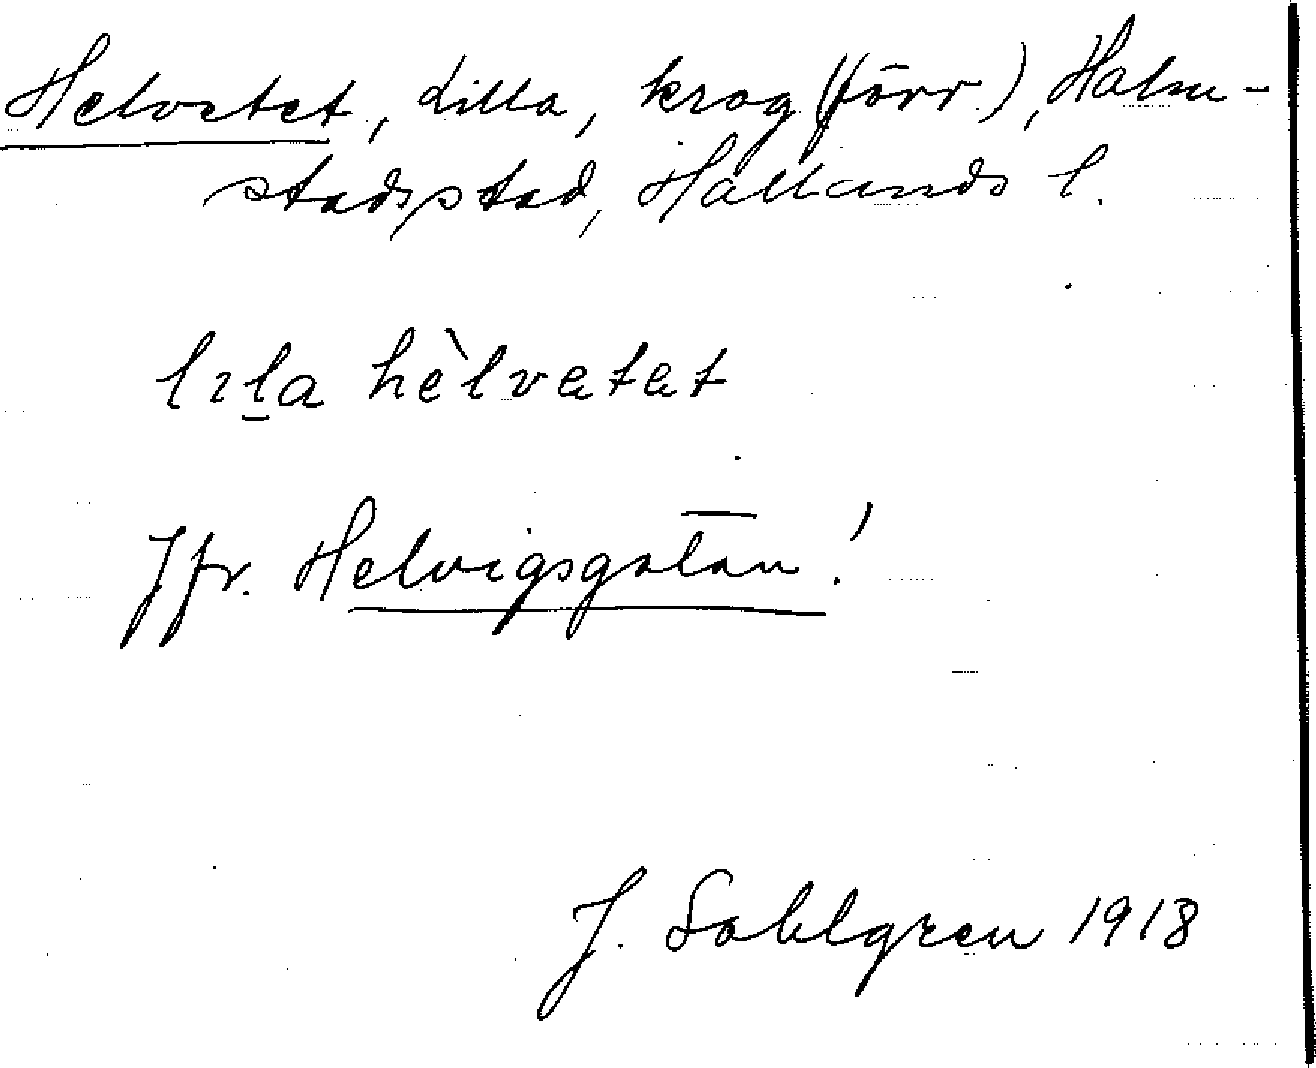 Helvetet, Lilla, krog (förr), Halm-
stads stad, Hallands l.
lɩla hèlvetet
Jfr. Helvigsgatan!
J. Sahlgren 1918